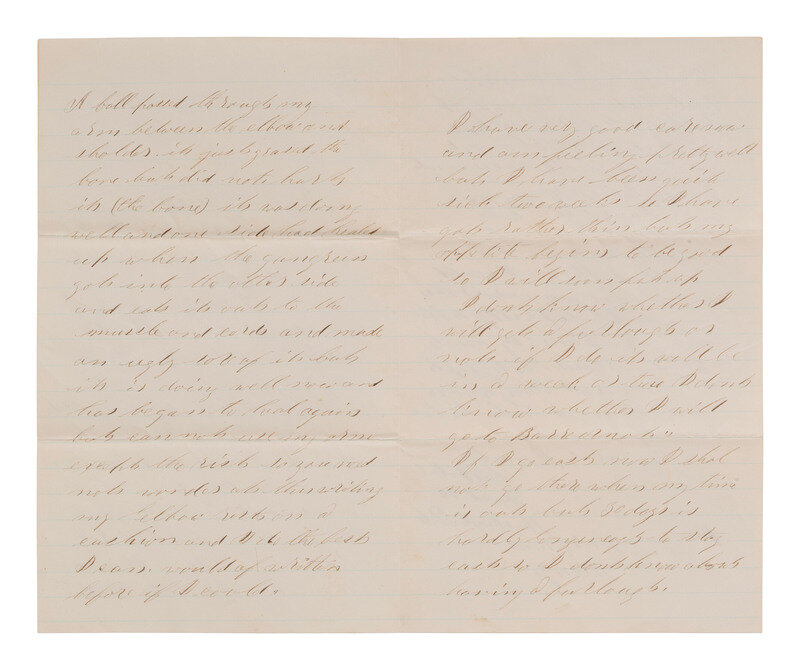 A ball passd through my
arm between the elbow and
sholder. it just grasd the
bone but did not hurt
it (the bone) it was doing
well and one side had heald
up when the gangreen
got into the other side
and eat it out to the
mussle and cords and made
an ugly sore of it but
it is doing well now and
has began to heal again
but can not use my arm
except the rist so you wod
not wonder at this writing
my elbow rests on a
cushion and I do the best
I can. would of written
before if I could.
I have very good care now
and am feeling pretty well
but I have been quite
sick two weeks so I have
got rather thin but my
appetite begins to be good
so I will soon pick up
I dont know whether I
will get a furlough or
not if I do it will be
in a week or two I dont
know whether I will
go to Barre or not"
If I go east now I shal
not go there when my time
is out but 30 days is
hardly long enogh to stay
east so I dont know about
having a furlough.